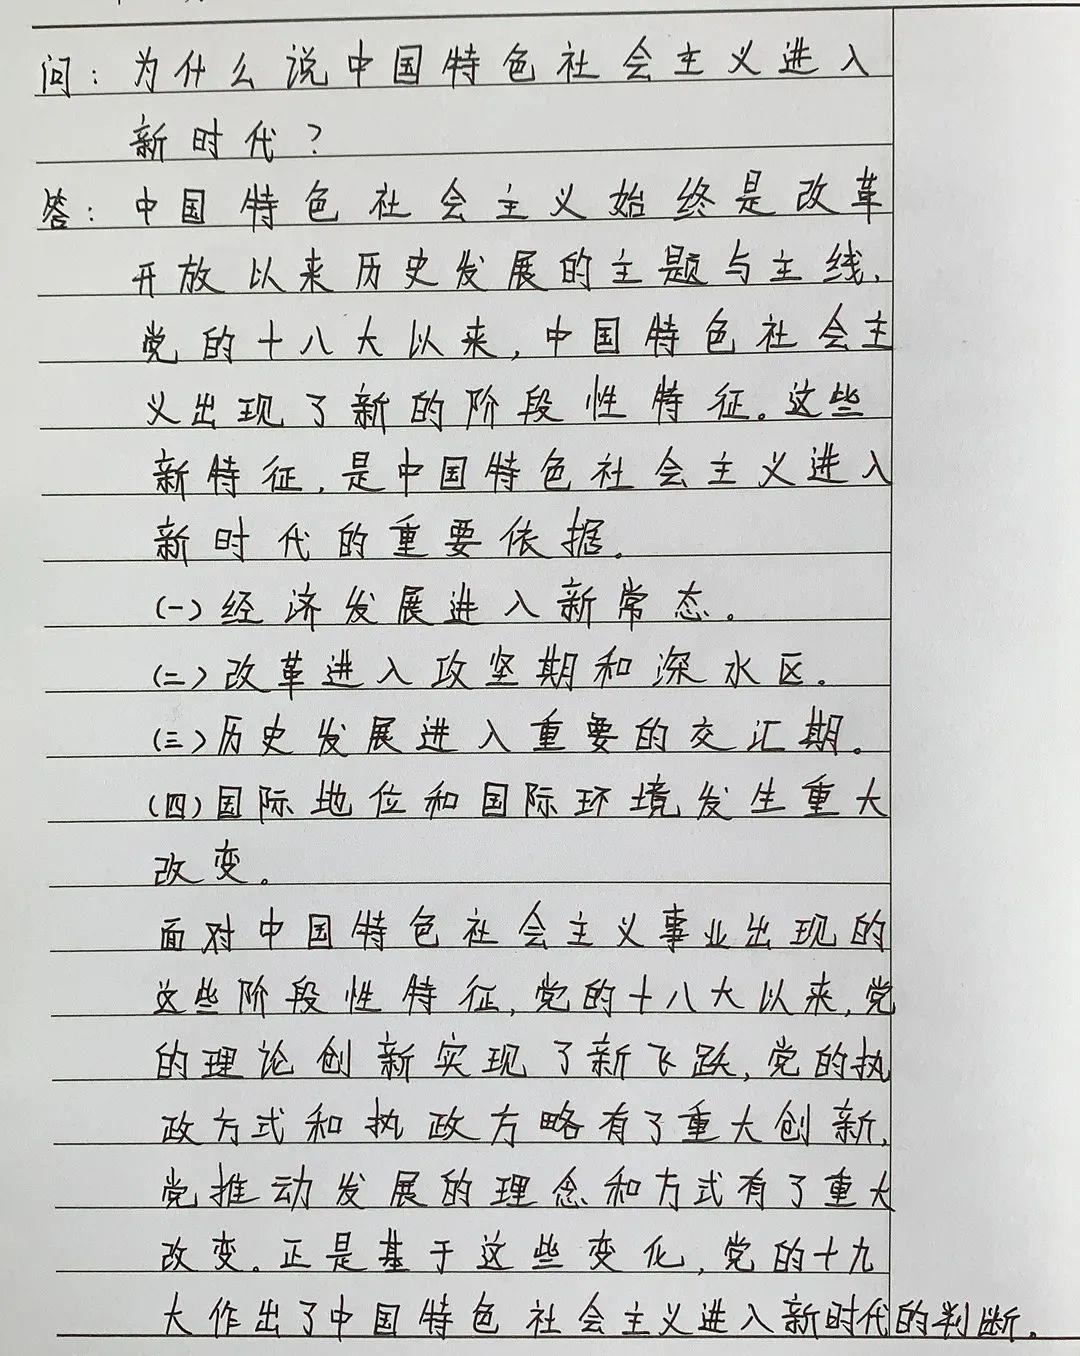 问：为什么说中国特色社会主义进入
新时代？
答：中国特色社会主义始终是改革
开放以来历史发展的主题与主线，
党的十八大以来，中国特色社会主
义出现了新的阶段性特征。这些
新特征，是中国特色社会主义进入
新时代的重要依据。
(一)经济发展进入新常态。
(二)改革进入攻坚期和深水区。
(三)历史发展进入重要的交汇期。
(四)国际地位和国际环境发生重大
改变。
面对中国特色社会主义事业出现的
这些阶段性特征，党的十八大以来，党
的理论创新实现了新飞跃，党的执
政方式和执政方略有了重大创新，
党推动发展的理念和方式有了重大
改变。正是基于这些变化，党的十九
大作出了中国特色社会主义进入新时代的判断。